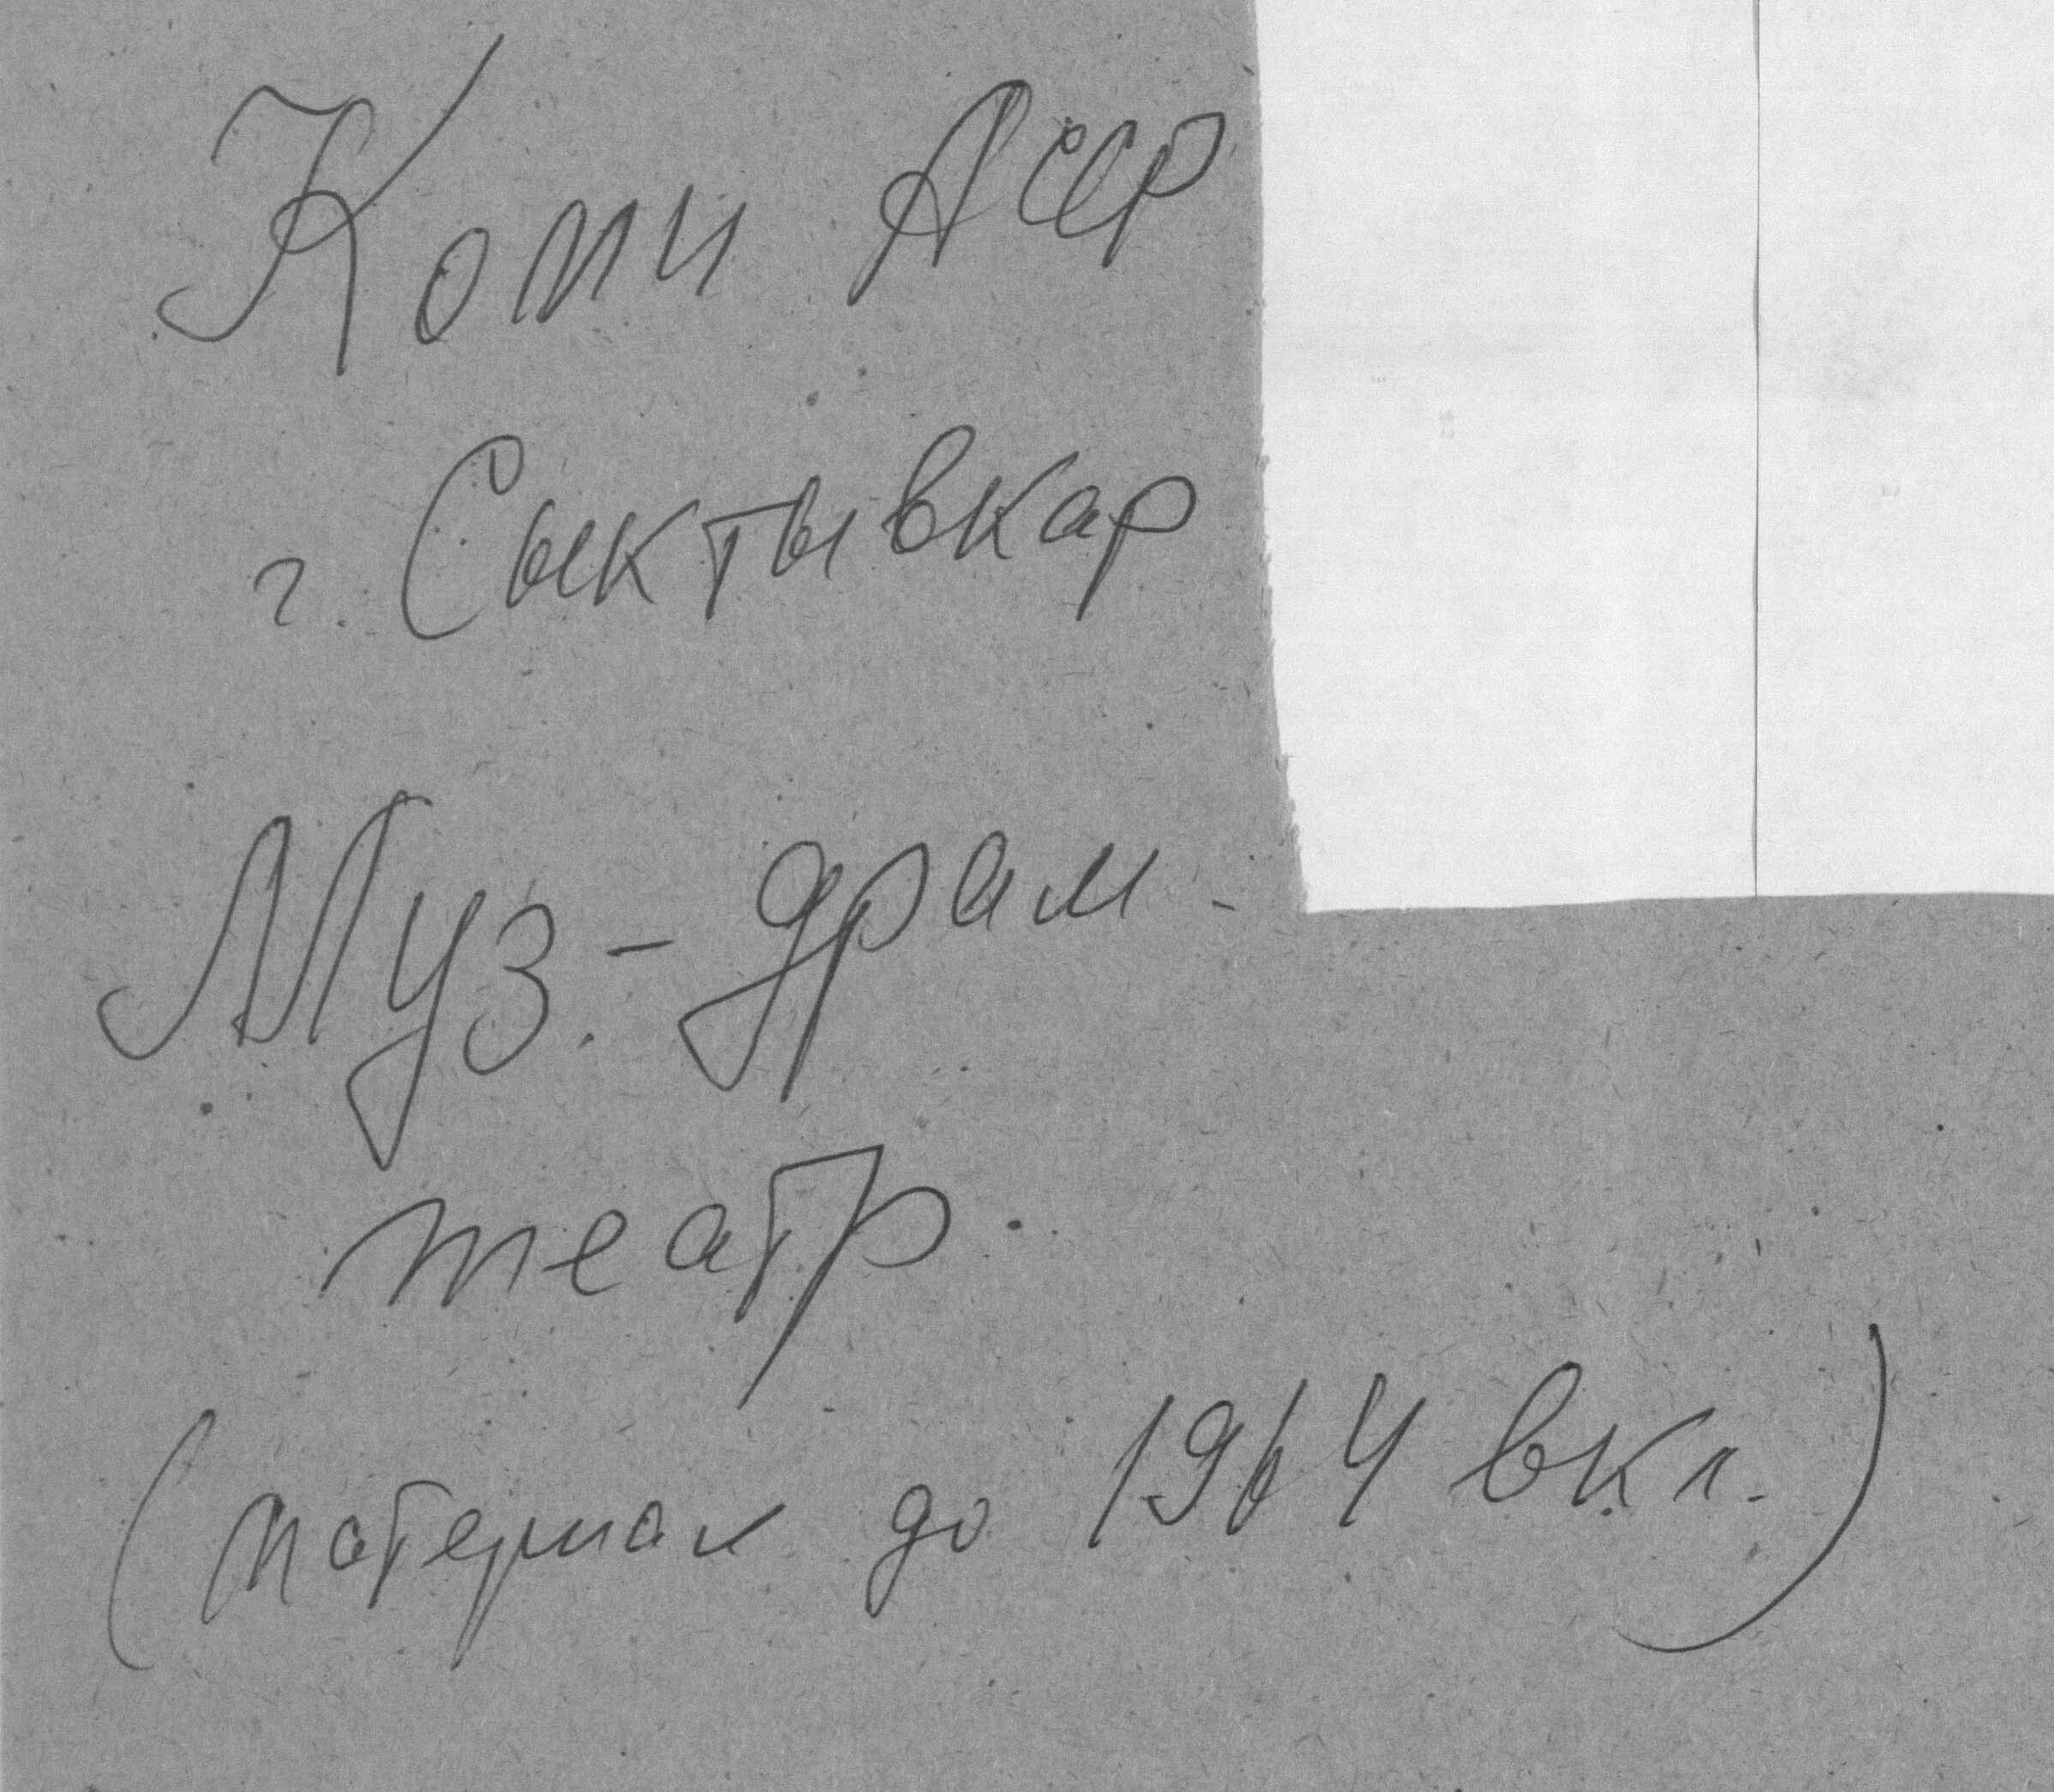 Коми АССР
г. Сыктывкар
Муз.-драм.
театр.
(материал до 1964 вкл.)